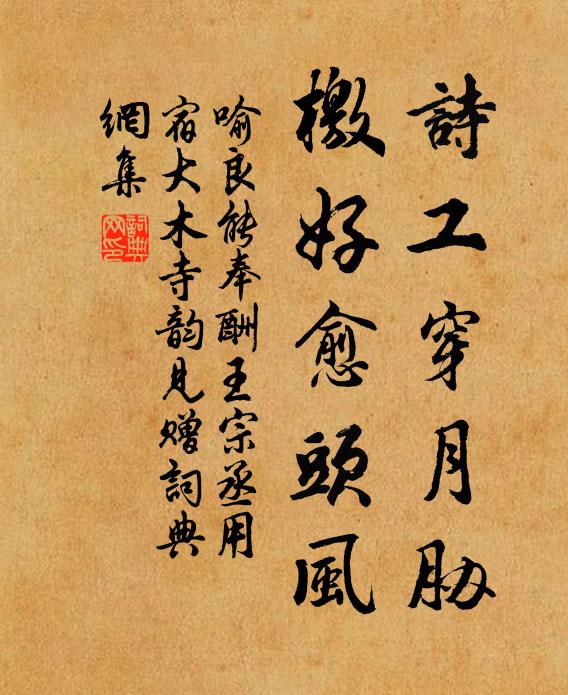 詩工穿月胁
檄好愈頭風
喻良能奉酬王宗丞用
宿大木寺韵見赠詞典
網集
詞典
网印